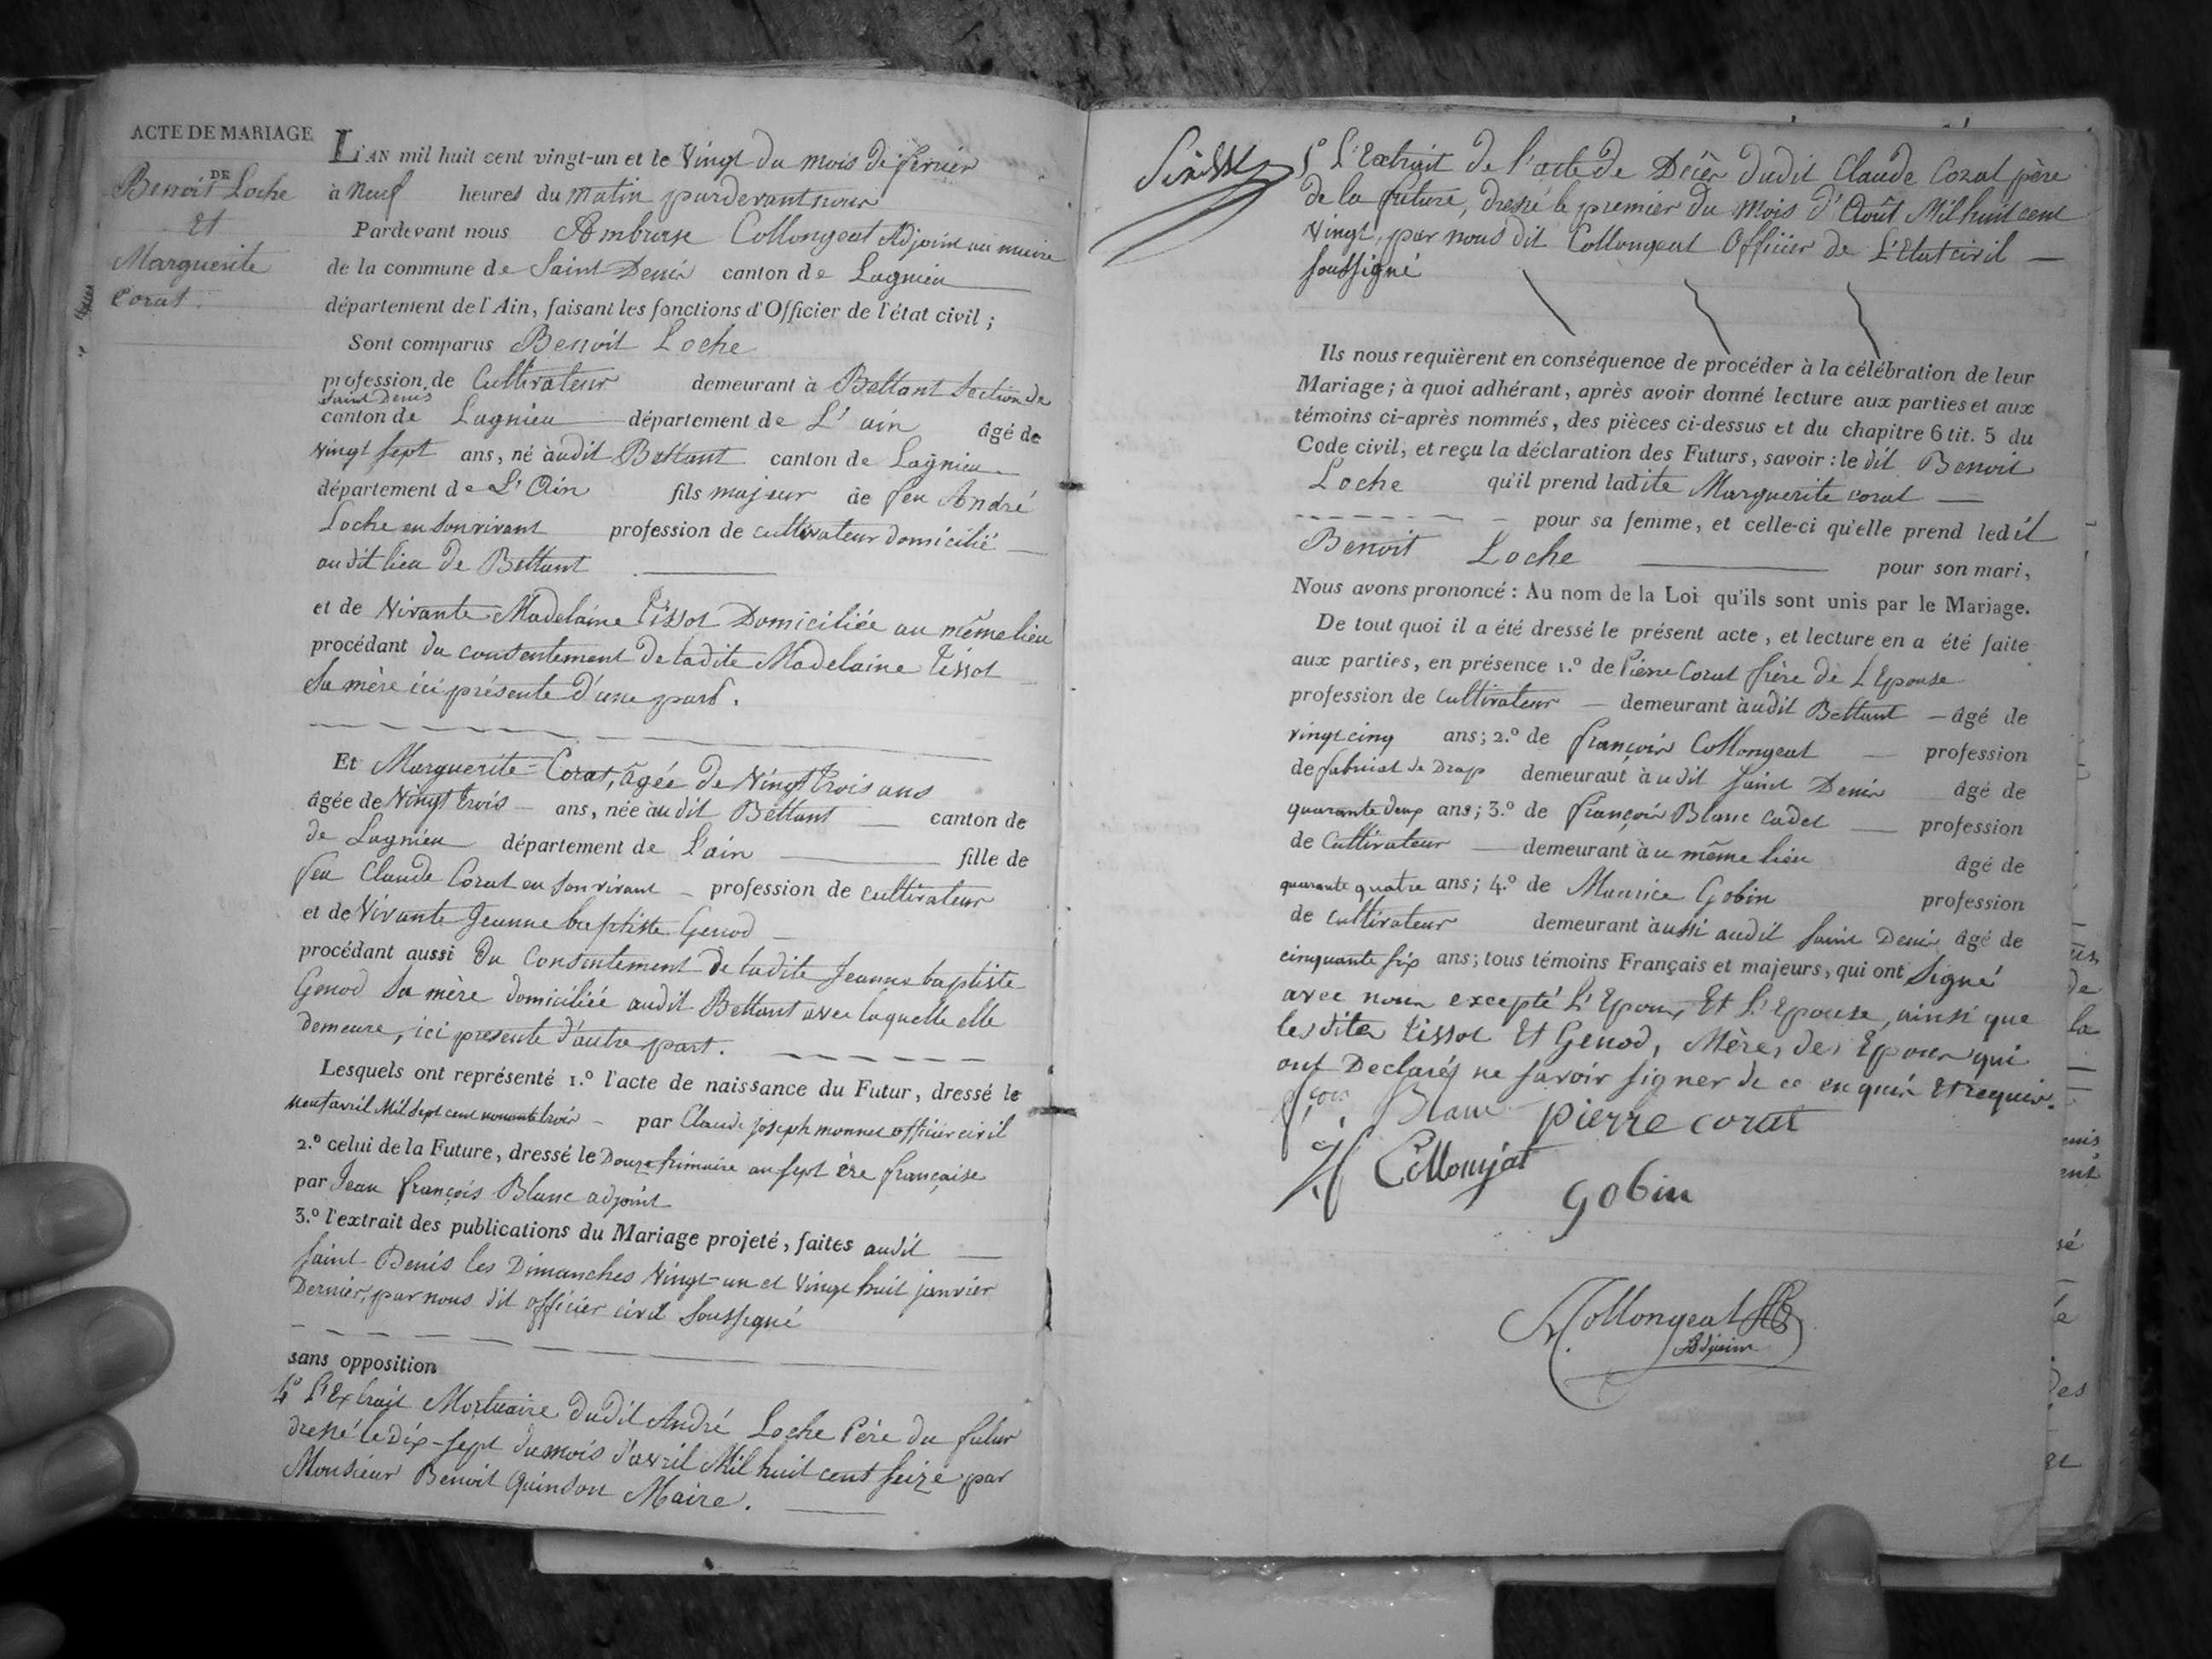 ACTE DE MARIAGE
DE
Benoit Loche
et
Marguerite
Corat.
L'AN mil huit cent vingt-un et le Vingt du mois de fevrier
à Neuf heures du matin pardevant nous
Pardevant nous Ambroise Collongeat Adjoint au maire
de la commune de Saint Denis canton de Lagnieu
département de l'Ain, faisant les fonctions d'Officier de l'état civil ;
Sont comparus Benoit Loche
profession de Cultivateur demeurant à Bettant Section de
Saint Denis
canton de Lagnieu département de L'ain âgé de
Vingt sept ans, né audit Bettant canton de Lagnieu
département de L'Ain fils majeur de feu André
Loche en son vivant profession de cultivateur domicilié
audit lieu de Bettant
et de Vivante Madelaine Tissot Domiciliée au même lieu
procédant du consentement de ladite Madelaine Tissot
Sa mère ici présente d'une part.
Et Marguerite Corat, âgée de Vingt trois ans
âgée de Vingt trois ans, née audit Bettant canton de
de Lagnieu département de L'ain fille de
feu Claude Corat en son vivant profession de cultivateur
et de Vivante Jeanne baptiste Genod
procédant aussi du Consentement de ladite Jeanne baptiste
Genod Sa mère domiciliée audit Bettant avec laquelle elle
demeure, ici presente d'autre part.
Lesquels ont représenté 1.º l'acte de naissance du Futur, dressé le
neuf avril Mil Sept cent nonante trois par Claude joseph monnet officier civil
2.º celui de la Future, dressé le Douze frimaire an sept ère française
par Jean françois Blanc adjoint
3.º l'extrait des publications du Mariage projeté, faites audit
Saint Denis les Dimanches Vingt-un et Vingt huit janvier
Dernier, par nous dit officier civil Soussigné
sans opposition
4º L'Extrait Mortuaire dudit André Loche Père du futur
dressé le dix-sept du mois d'avril Mil huit cent Seize par
Monsieur Benoit Quinson Maire.
5º L'Extrait de l'acte de Décès dudit Claude Corat père
de la future, dressé le premier du Mois d'Août Mil huit cent
Vingt, par nous dit Collongeat Officier de L'Etat civil
soussigné
Ils nous requièrent en conséquence de procéder à la célébration de leur
Mariage ; à quoi adhérant, après avoir donné lecture aux parties et aux
témoins ci-après nommés, des pièces ci-dessus et du chapitre 6 tit. 5 du
Code civil, et reçu la déclaration des Futurs, savoir : le dit Benoit
Loche qu'il prend ladite Marguerite corat
pour sa femme, et celle-ci qu'elle prend ledit
Benoit Loche pour son mari,
Nous avons prononcé : Au nom de la Loi qu'ils sont unis par le Mariage.
De tout quoi il a été dressé le présent acte, et lecture en a été faite
aux parties, en présence 1.º de Pierre Corat frère de L'Epouse
profession de Cultivateur demeurant audit Bettant âgé de
vingt cinq ans ; 2.º de françois Collongeat profession
de fabricat de Drap demeurant audit Saint Denis âgé de
quarante deux ans ; 3.º de françois Blanc cadet profession
de Cultivateur demeurant au même lieu âgé de
quarante quatre ans ; 4.º de Maurice Gobin profession
de cultivateur demeurant aussi audit Saint Denis âgé de
cinquante six ans ; tous témoins Français et majeurs, qui ont Signé
avec nous excepté L'Epoux Et L'Epouse, ainsi que
les dites Tissot Et Genod, Mères des Epoux qui
ont Declarés ne savoir signer de ce enquis Et requis.
fçois Blanc pierre corat
Collonjat
gobin
Collongeat
Adjoint